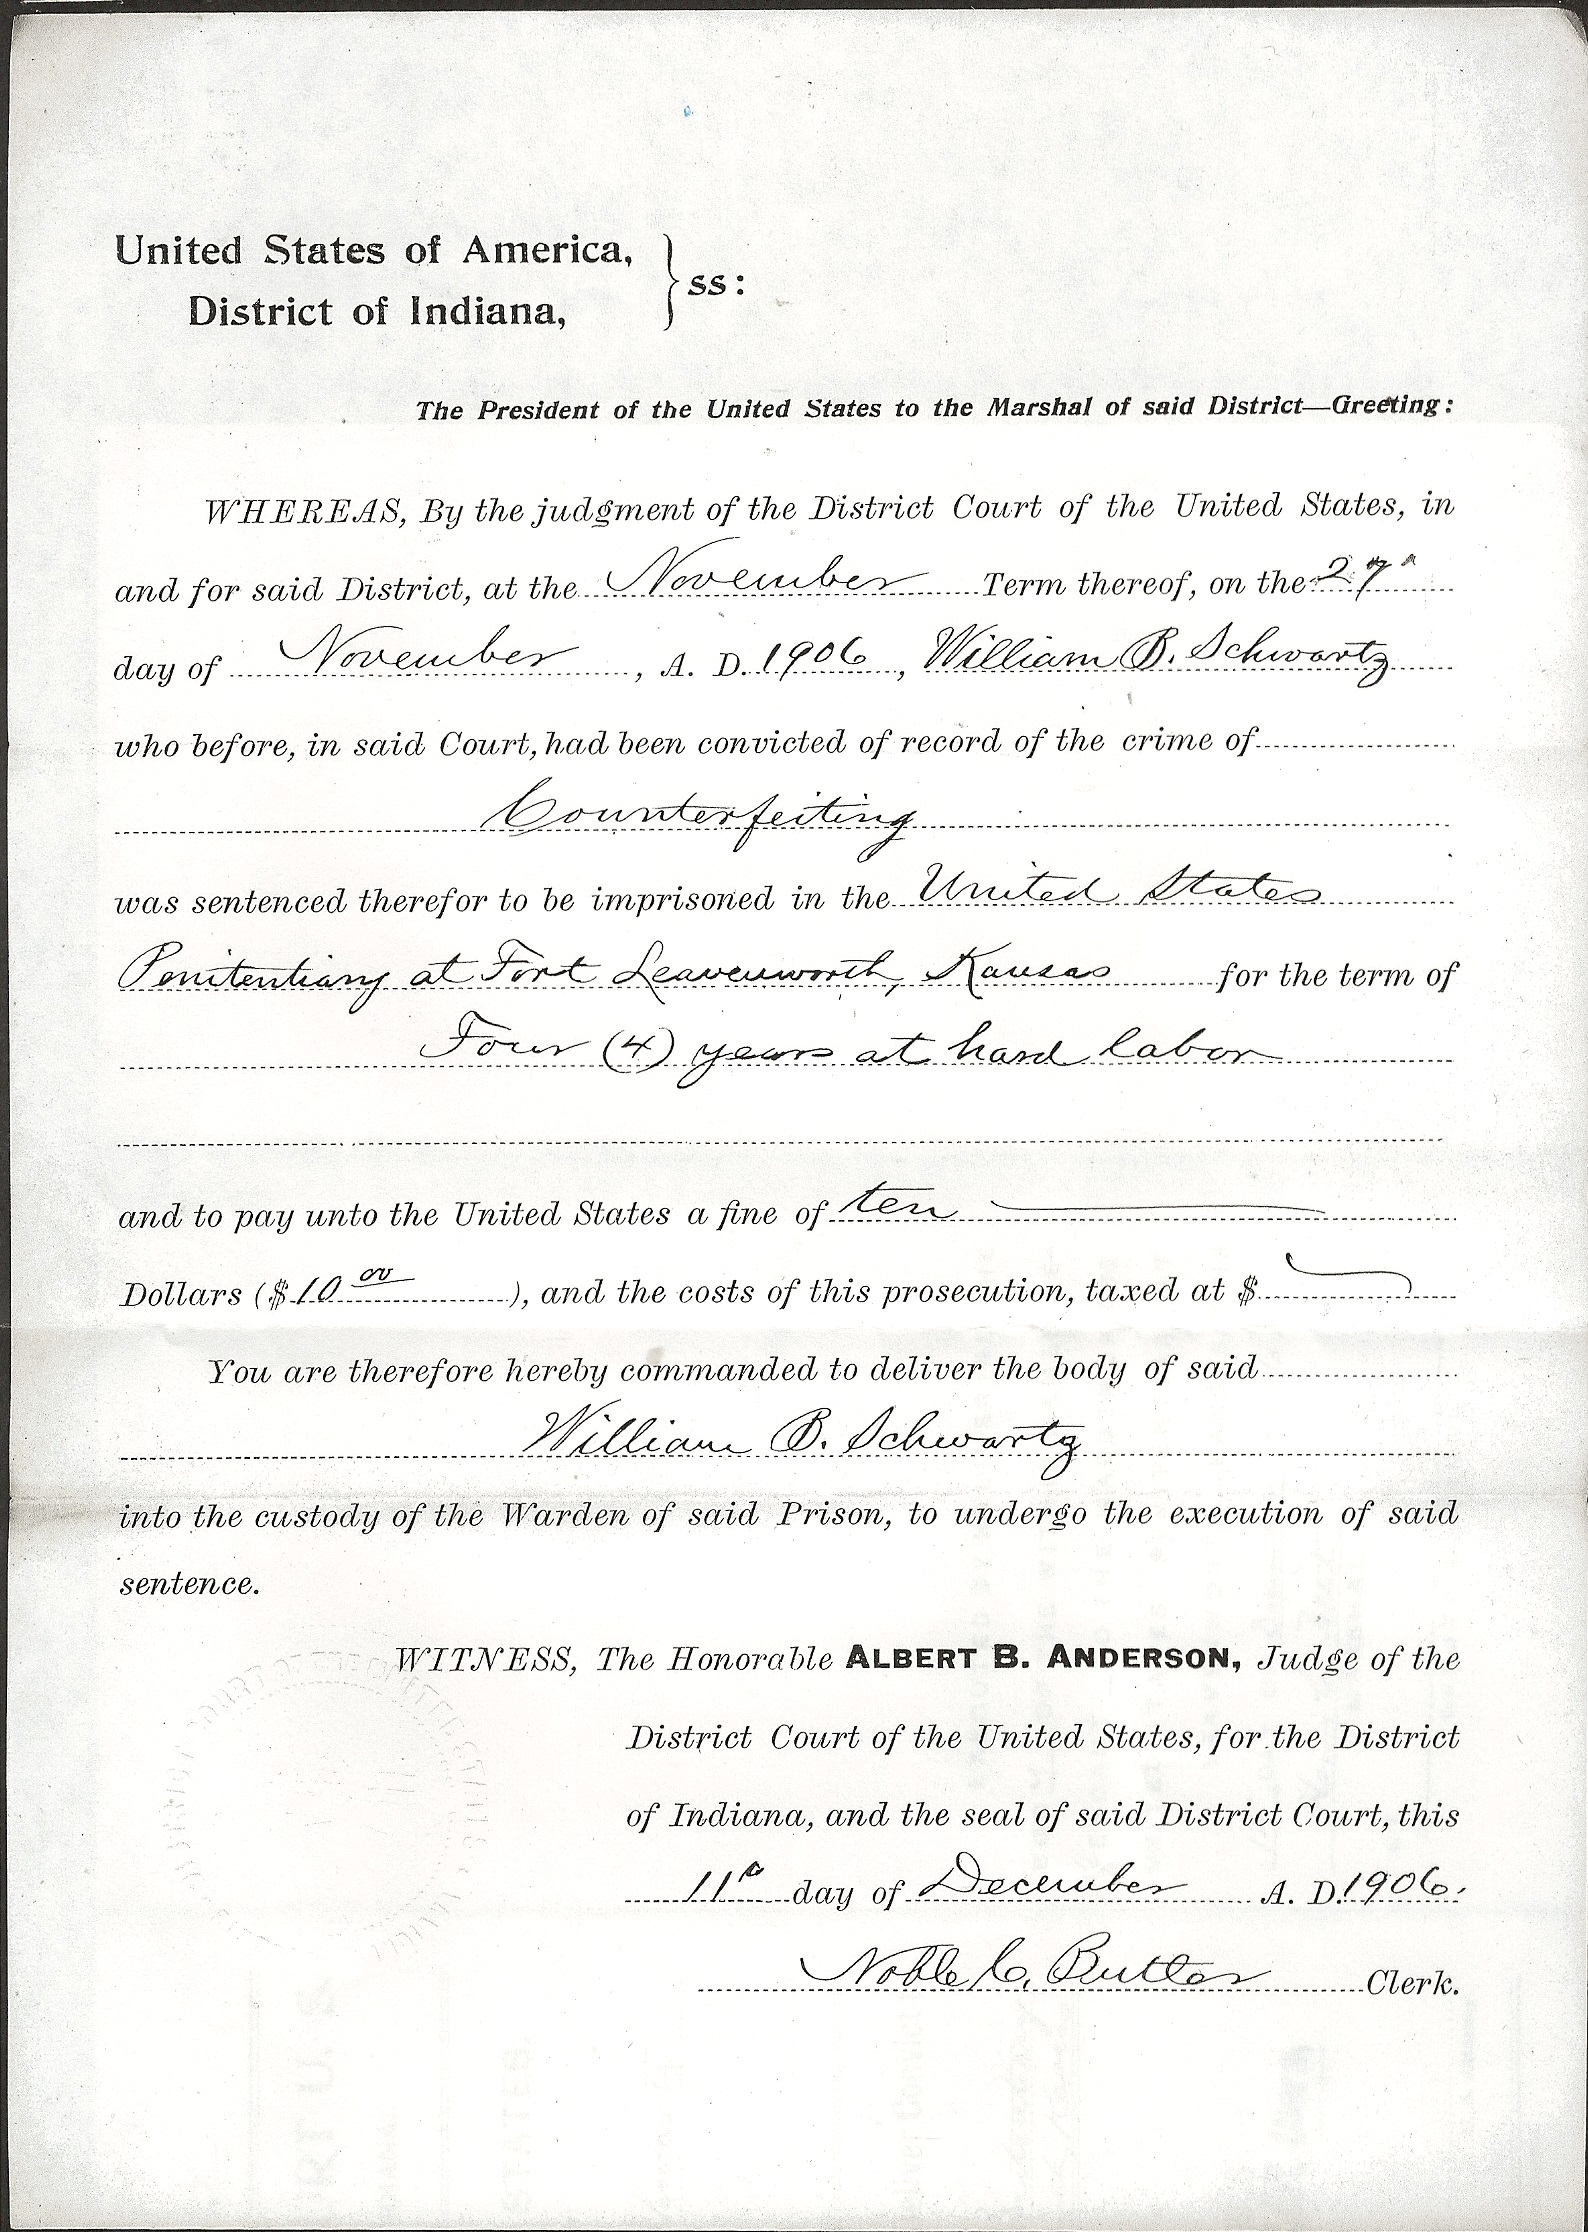 United States of America,
District of Indiana, } ss:
The President of the United States to the Marshal of said District—Greeting:
WHEREAS, By the judgment of the District Court of the United States, in
and for said District, at the November Term thereof, on the 27"
day of November, A. D. 1906, William B. Schwartz
who before, in said Court, had been convicted of record of the crime of
Counterfeiting
was sentenced therefor to be imprisoned in the United States
Penitentiary at Fort Leavenworth, Kansas for the term of
Four (4) years at hard labor
and to pay unto the United States a fine of ten
Dollars ($10 00), and the costs of this prosecution, taxed at $
You are therefore hereby commanded to deliver the body of said
William B. Schwartz
into the custody of the Warden of said Prison, to undergo the execution of said
sentence.
WITNESS, The Honorable ALBERT B. ANDERSON, Judge of the
District Court of the United States, for the District
of Indiana, and the seal of said District Court, this
11" day of December A. D. 1906.
Noble C. Butler Clerk.